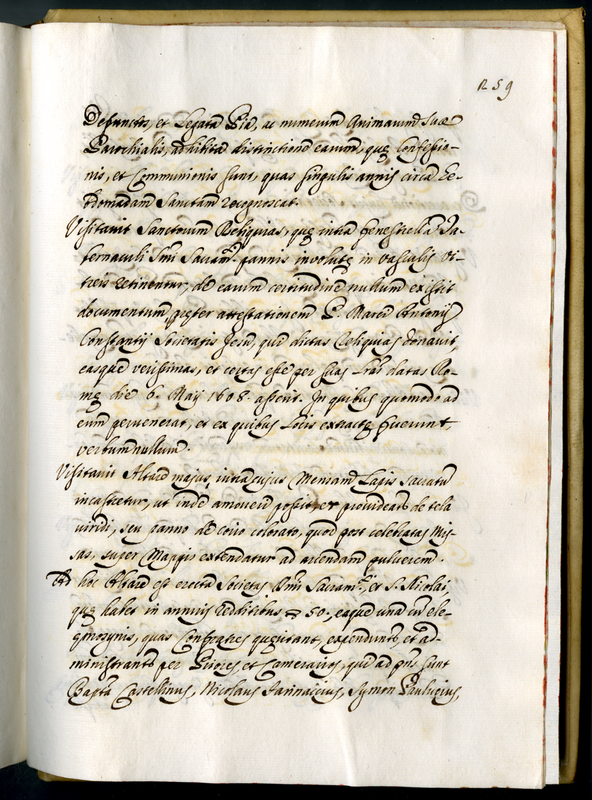 259
Defunctos, et Legata Pia, ac numerum Animarum suæ
Parochialis, adhibita distinctione earum, quę Confessio-
nis, et Communionis sunt, quas singulis annis circa he-
bdomadam Sanctam recognoscat.
Visitavit Sanctorum Reliquias, quę intra fenestrella Ta-
bernaculi Smi Sacramti pannis involutę in vasculis vi-
treis retinentur, de earum certitudine nullum existit
documentum pręter attestationem P. Marci Antonij
Constantij Societatis Jesu, qui dictas Reliquias donavit,
easque verissimas, et certas esse per suas Lras datas Ro-
mę die 6. Maij 1608. asserit. In quibus quomodo ad
eum pervenerat, et ex quibus Locis extractę fuerunt,
verbum nullum.
Visitavit Altare majus, intra cujus Mensam Lapis sacratus
incastretur, ut inde amoveri possit, et provideat de tela
viridi, seu panno de corio colorato, quod post celebratas Mis-
sas, super Mappis extendatur ad arcendam pulverem.
Ad hoc Altare est erecta Societas Smi Sacramti, et S. Nicolai,
quę habet in annuis redditibus 50. eaque una cum ele-
emosynis, quas Confratres quęritant, expendunt, et ad-
ministrant per Priores et Camerarios, qui ad pns sunt
Bapta Castellinus, Nicolaus Farinaccius, Symon Paulucius,